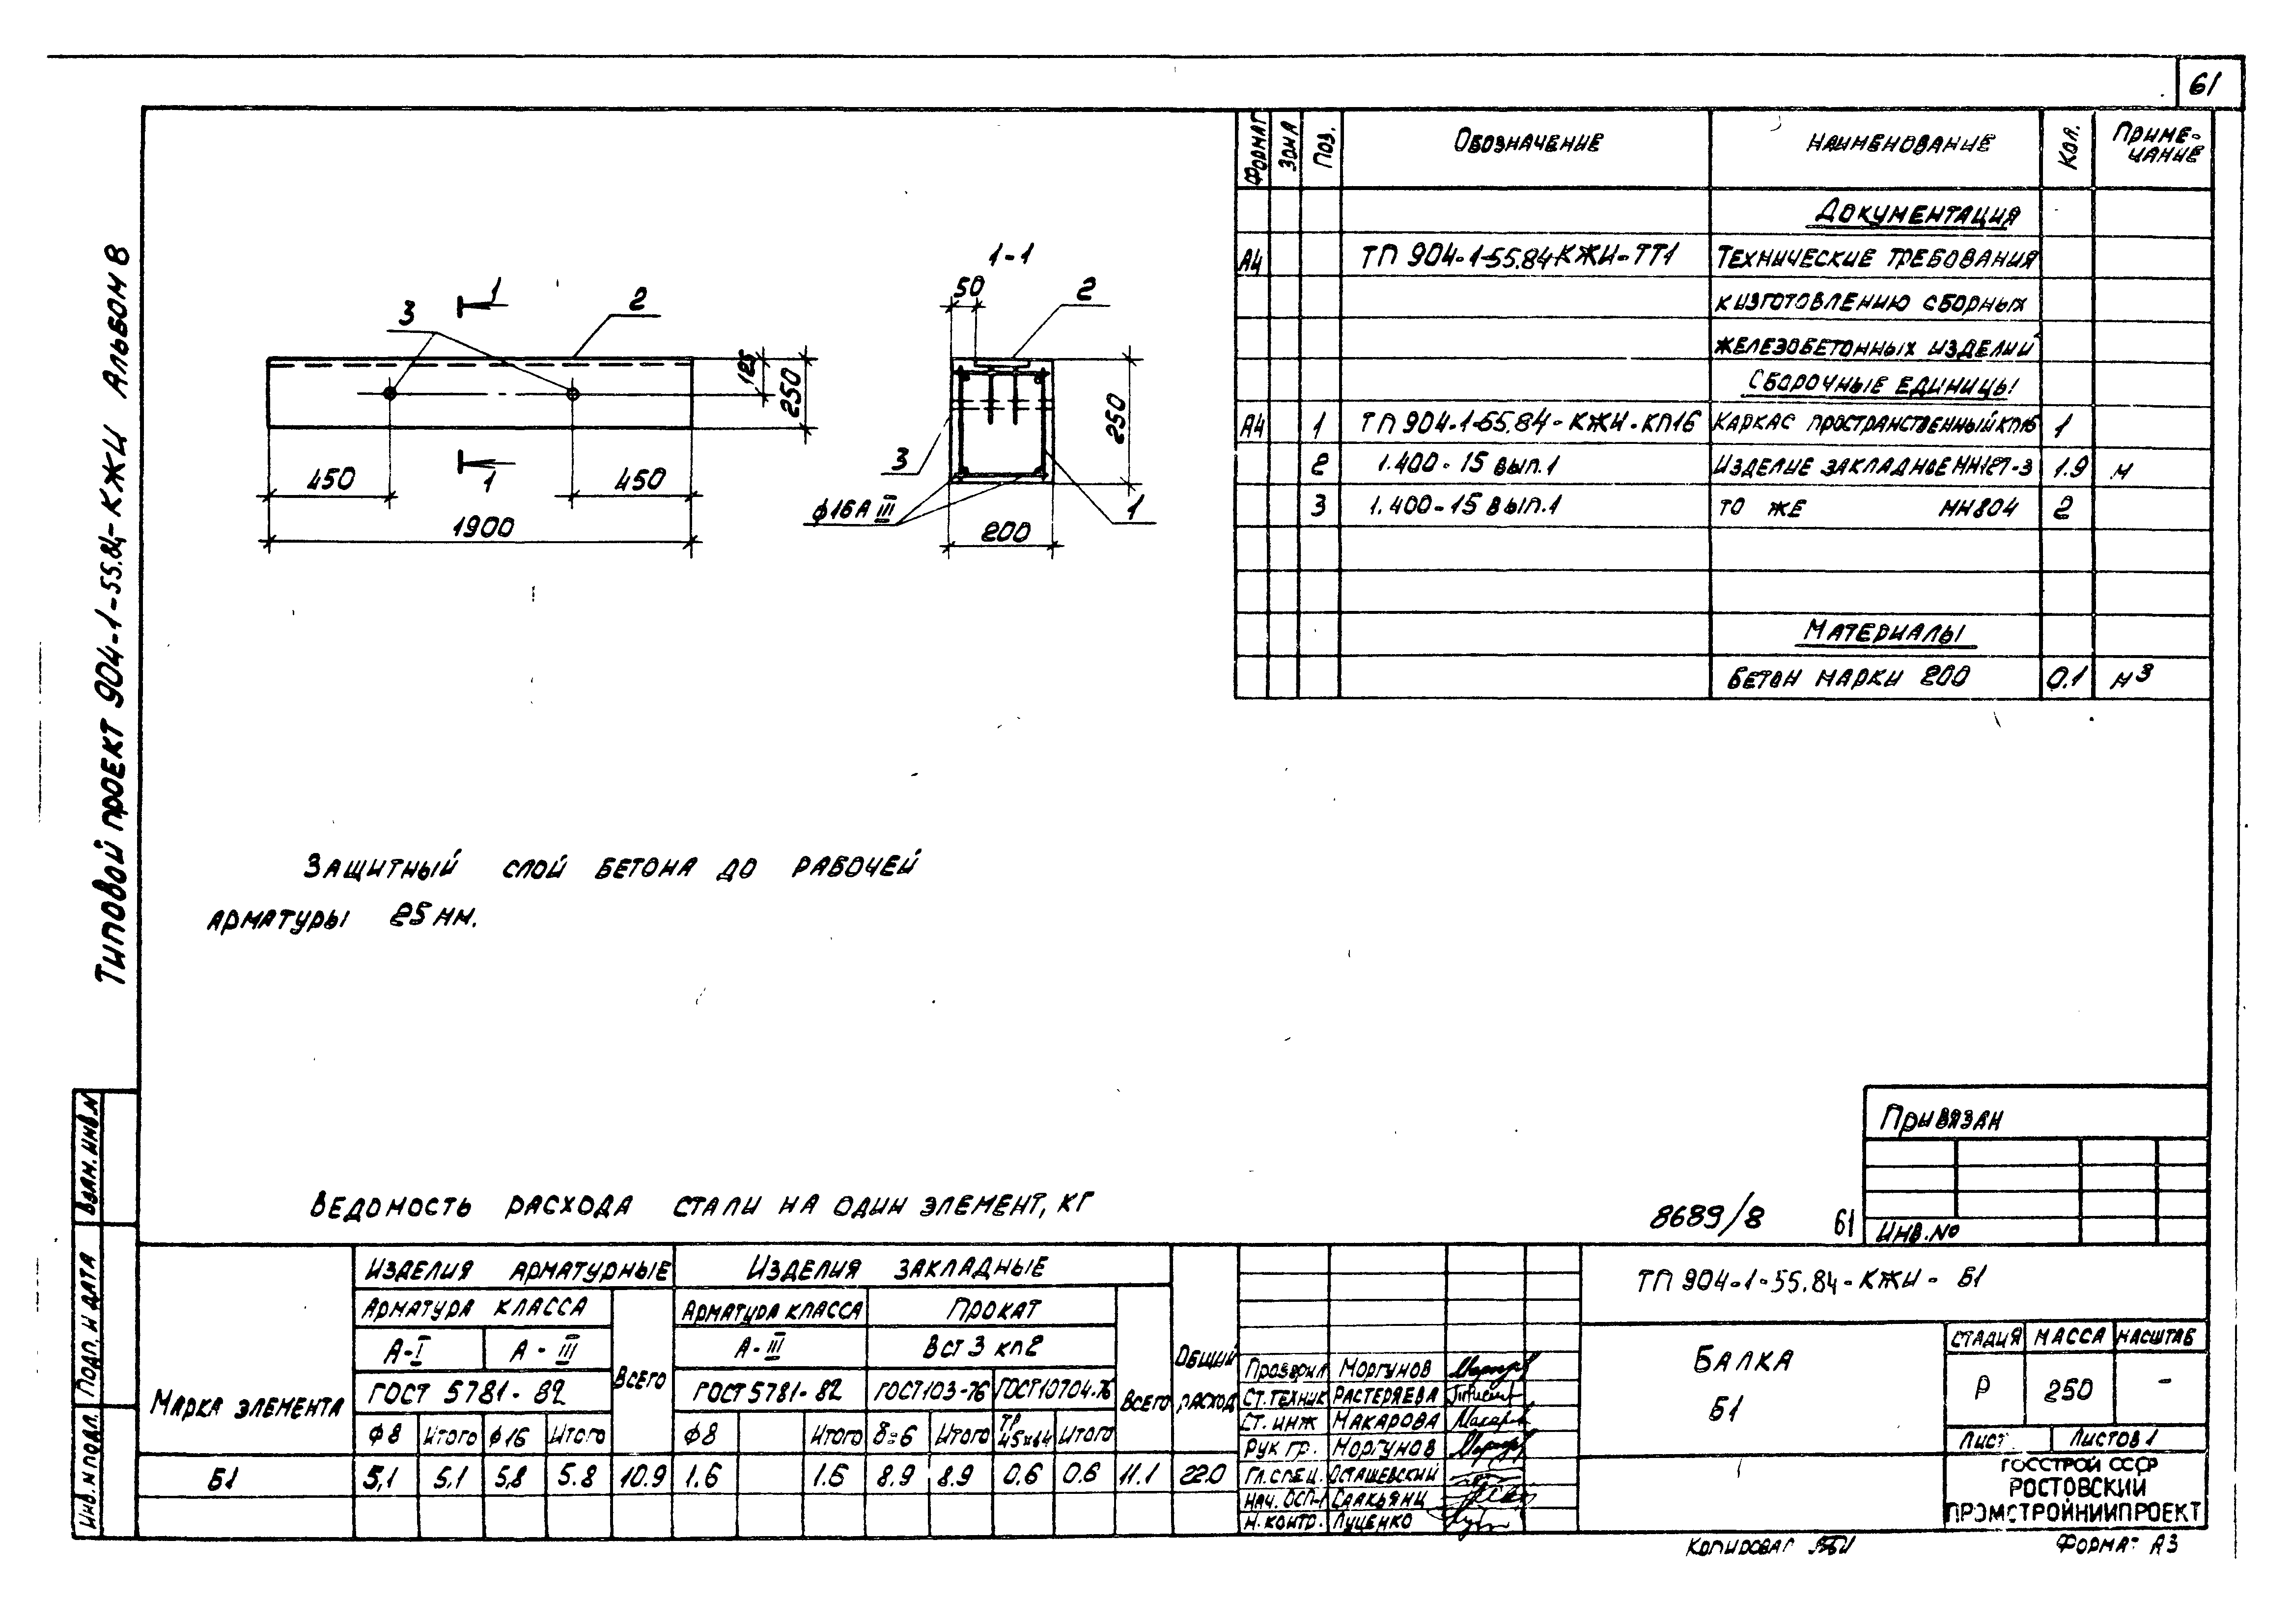 61
Типовой проект 904-1-55.84-КЖИ Альбом 8
Формат Зона Поз. Обозначение Наименование Кол. Примечание
Документация
А4 ТП 904-1-55.84-КЖИ-ТТ1 Технические требования
к изготовлению сборных
железобетонных изделий
Сборочные единицы
А4 1 ТП 904-1-55.84-КЖИ-КП16 Каркас пространственный КП16 1
2 1.400-15 вып.1 Изделие закладное МН127-3 1.9 м
3 1.400-15 вып.1 То же МН804 2
Материалы
Бетон марки 200 0.1 м3
1
3
2
125
250
450
450
1
1900
1-1
50
2
250
3
ф16А III
1
200
Защитный слой бетона до рабочей
арматуры 25 мм.
Привязан
Инв.No
8689/8 61
Ведомость расхода стали на один элемент, кг
Марка элемента
Изделия арматурные Изделия закладные
Арматура класса Арматура класса Прокат
А-I А-III Всего А-III ВСт3 кп2 Всего Общий расход
ГОСТ 5781-82 ГОСТ 5781-82 ГОСТ103-76 ГОСТ10704-76
ф8 Итого ф16 Итого ф8 Итого δ=6 Итого Итого
Б1 5,1 5.1 5,8 5.8 10.9 1.6 1.6 8.9 8.9 0.6 0.6 11.1 22.0
Проверил Моргунов
Ст.техник Растеряева
Ст. инж Макарова
Рук гр. Моргунов
Гл.спец. Осташевский
Нач. ОСП-1 Саакьянц
Н.контр. Луценко
ТП 904-1-55.84-КЖИ-Б1
Балка
Б1
Стадия Масса Масштаб
Р 250 -
Лист Листов 1
ГОССТРОЙ СССР
РОСТОВСКИЙ
ПРОМСТРОЙНИИПРОЕКТ
Взам. инв.N
Подп. и дата
Инв. N подл.
Копировал
Формат А3